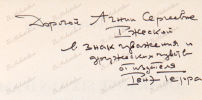 Дорогой Агнии Сергеевне
Ржеской
в знак уважения и
дружеских чувств
от издателя